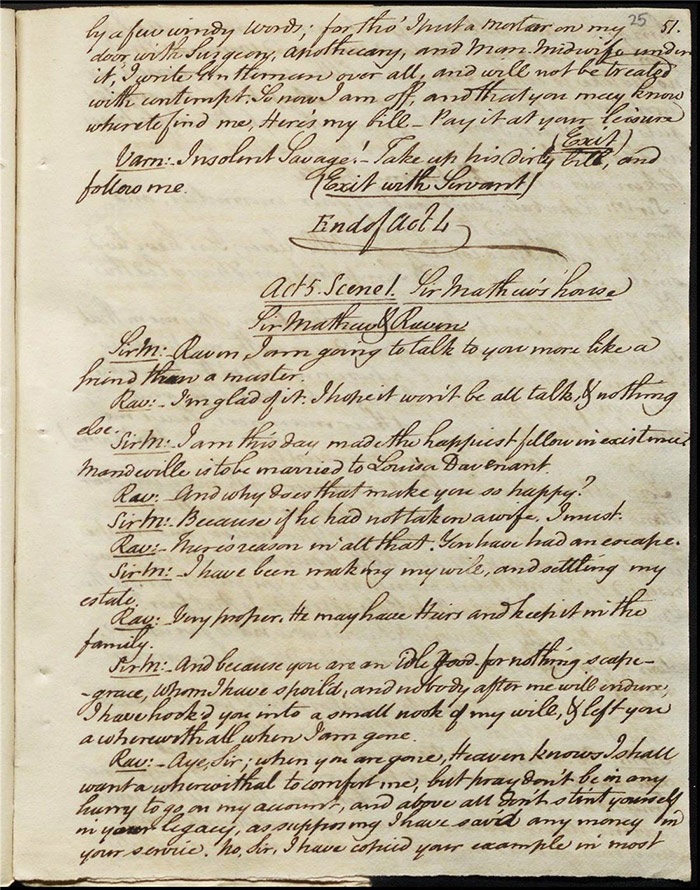 25 51.
by a few windy words; for tho' I put a mortar on my
door with Surgeon, apothecary, and Man-Midwife under
it, I write Gentleman over all, and will not be treated
with contempt. So now I am off, and that you may know
where to find me, Here's my bill – Pay it at your leisure
(Exit)
Varn:- Insolent Savage! – Take up his dirty bill, and
follow me. (Exit with Servant)
End of Act 4
Act 5. Scene 1. Sir Mathew's house
Sir Mathew & Raven
Sir M:- Raven, I am going to talk to you more like a
friend than a master.
Rav:- I'm glad of it. I hope it won't be all talk, & nothing
else.
Sir M:- I am this day made the happiest fellow in existence
Mandeville is to be married to Louisa Davenant.
Rav:- And why does that make you so happy?
Sir M:- Because if he had not taken a wife, I must.
Rav:- There's reason in all that. You have had an escape.
Sir M:- I have been making my will, and settling my
estate.
Rav:- Very proper. He may have Heirs and keep it in the
family.
Sir M:- And because you are an idle good for nothing scape-
-grace, whom I have spoil'd, and nobody after me will endure,
I have hook'd you into a small nook of my will, & left you
a wherewithall when I am gone.
Rav:- Aye, Sir; when you are gone, Heaven knows I shall
want a wherewithal to comfort me, but pray don't be in any
hurry to go, on my account, and above all don't stint yourself
in your legacy, as supposing I have saved any money in
your service. No, Sir, I have copied your example in most